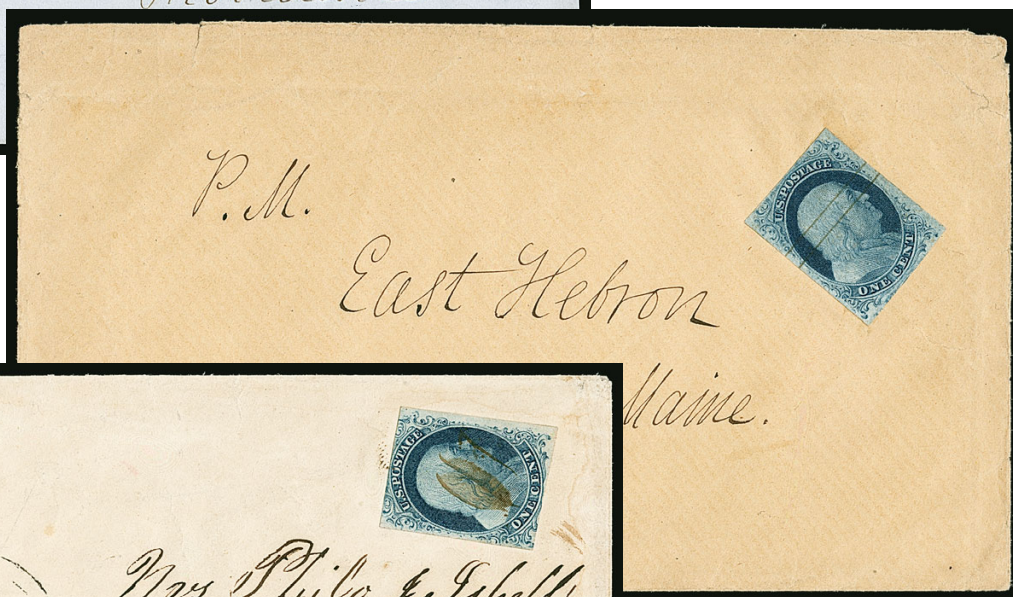 P. M.
East Hebron
Maine.
U.S. POSTAGE
ONE CENT
U.S. POSTAGE
ONE CENT
Philo